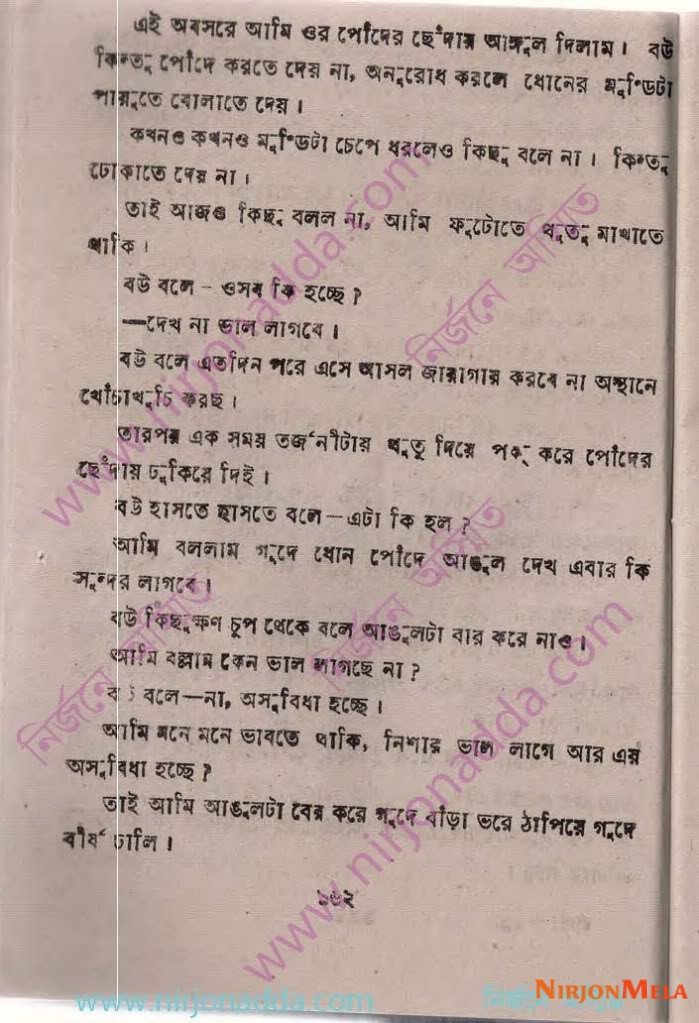 এই অবসরে আমি ওর পোঁদের ছেঁদায় আঙ্গুল দিলাম। বউ
কিন্তু পোঁদে করতে দেয় না, অনুরোধ করলে ধোনের মুন্ডিটা
পায়ুতে বোলাতে দেয়।
কখনও কখনও মুন্ডিটা চেপে ধরলেও কিছু বলে না। কিন্তু
ঢোকাতে দেয় না।
তাই আজও কিছু বলল না, আমি ফুটোতে থুতু মাখাতে
থাকি।
বউ বলে – ওসব কি হচ্ছে?
—দেখ না ভাল লাগবে।
বউ বলে এতদিন পরে এসে আসল জায়াগায় করবে না অস্থানে
খোঁচাখুচি করছ।
তারপর এক সময় তর্জনীটায় থুতু দিয়ে পক্ করে পোঁদের
ছেঁদায় ঢুকিয়ে দিই।
বউ হাসতে হাসতে বলে – এটা কি হল?
আমি বললাম গুদে ধোন পোঁদে আঙুল দেখ এবার কি
সুন্দর লাগবে।
বউ কিছুক্ষণ চুপ থেকে বলে আঙুলটা বার করে নাও।
আমি বল্লাম কেন ভাল লাগছে না?
বউ বলে—না, অসুবিধা হচ্ছে।
আমি মনে মনে ভাবতে থাকি, নিশার ভাল লাগে আর এর
অসুবিধা হচ্ছে?
তাই আমি আঙুলটা বের করে গুদে বাঁড়া ভরে ঠাপিয়ে গুদে
বীর্য ঢালি।
১৬২
www.nirjonadda.com
নির্জনে অয়িত
নির্জনে অয়িত
নির্জনে অয়িত
www.nirjonadda.com
www.nirjonadda.com
NIRJONMELA